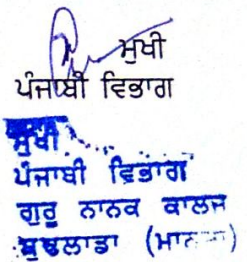 ਮੁਖੀ
ਪੰਜਾਬੀ ਵਿਭਾਗ
ਮੁਖੀ
ਪੰਜਾਬੀ ਵਿਭਾਗ
ਗੁਰੂ ਨਾਨਕ ਕਾਲਜ
ਬੁਢਲਾਡਾ